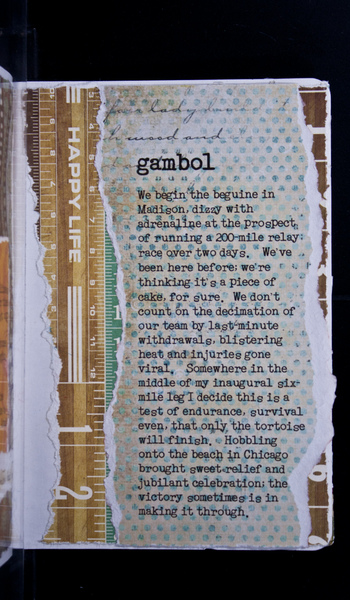 HAPPY LIFE
gambol
We begin the beguine in
Madison, dizzy with
adrenaline at the prospect
of running a 200-mile relay
race over two days. We've
been here before; we're
thinking it's a piece of
cake, for sure. We don't
count on the decimation of
our team by last-minute
withdrawals, blistering
heat and injuries gone
viral. Somewhere in the
middle of my inaugural six-
mile leg I decide this is a
test of endurance, survival
even, that only the tortoise
will finish. Hobbling
onto the beach in Chicago
brought sweet relief and
jubilant celebration; the
victory sometimes is in
making it through.
1
2